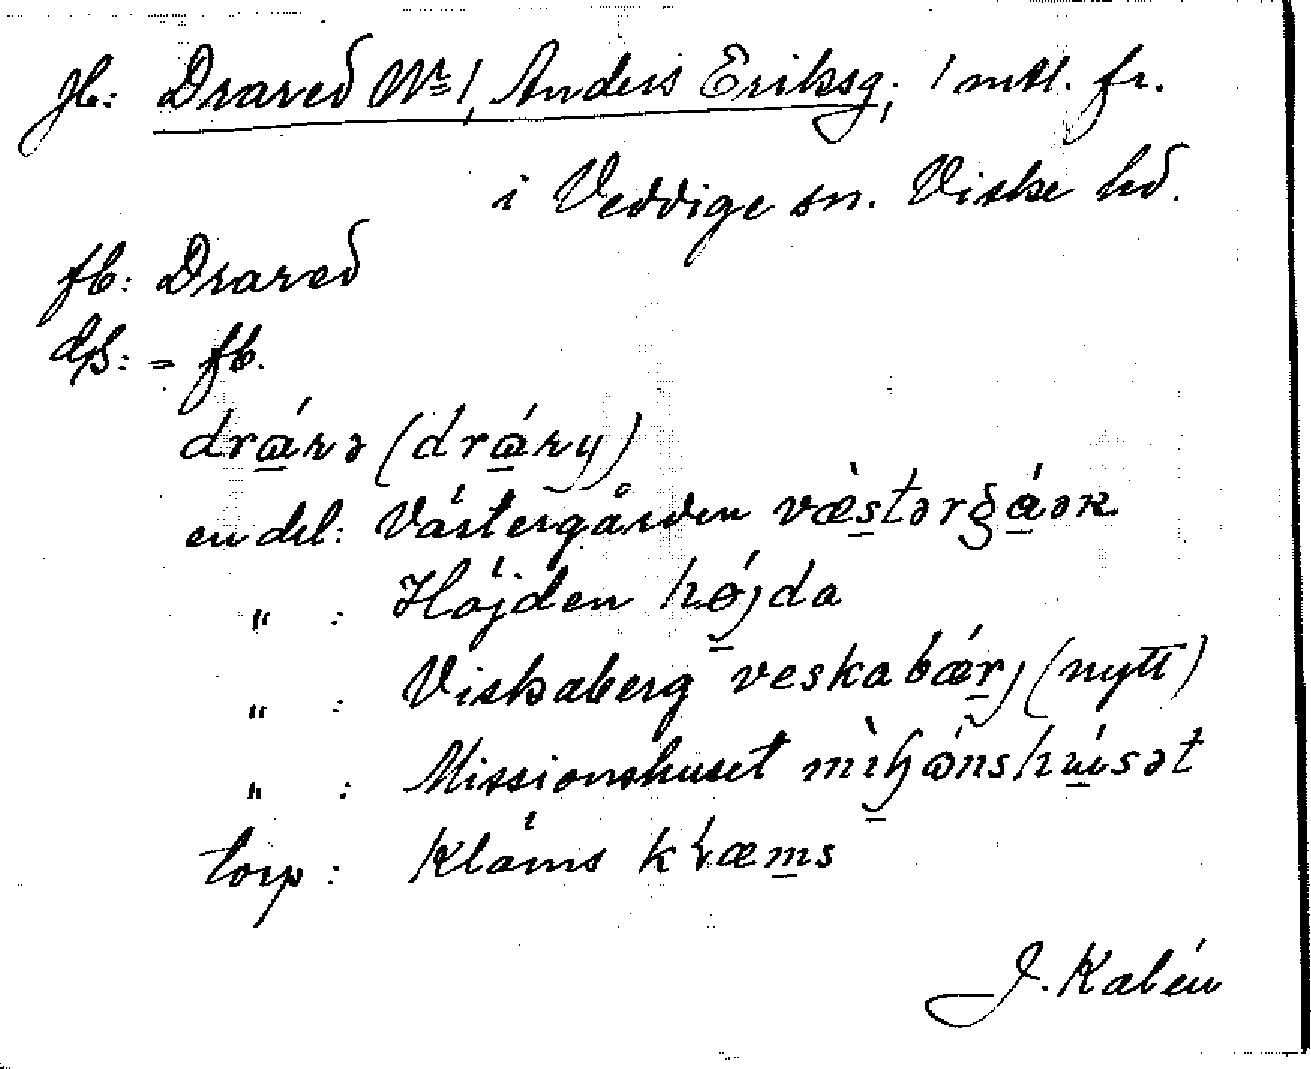 jb: Drared Nr 1, Anders Eriksg; 1 mtl. fr.
i Veddige sn. Viske hd.
fb: Drared
ds: = fb.
drárə (dráry)
en del: Västergården væ̀stərgáəʀ
" : Höjden hǿjda
" : Viskaberg veskabǽrj (nytt)
" : Missionshuset
torp: Kläms
J. Kalén